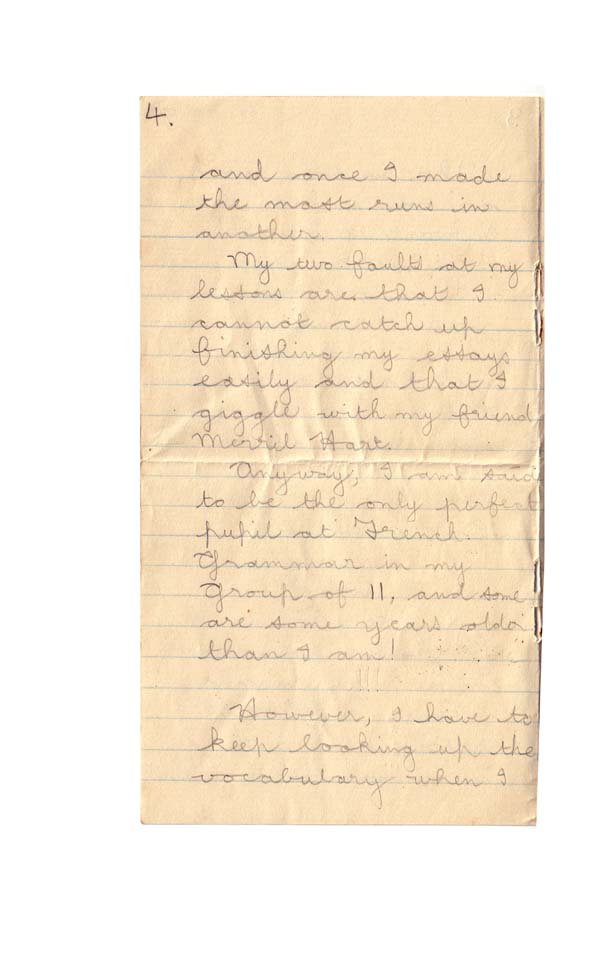 4.
and once I made
the most runs in
another.
My two faults at my
lessons are that I
cannot catch up
finishing my essays
easily and that I
giggle with my friend
Merril Hart.
Anyway, I am said
to be the only perfect
pupil at French
Grammar in my
Group of 11, and some
are some years older
than I am!
!!!
However, I have to
keep looking up the
vocabulary when I